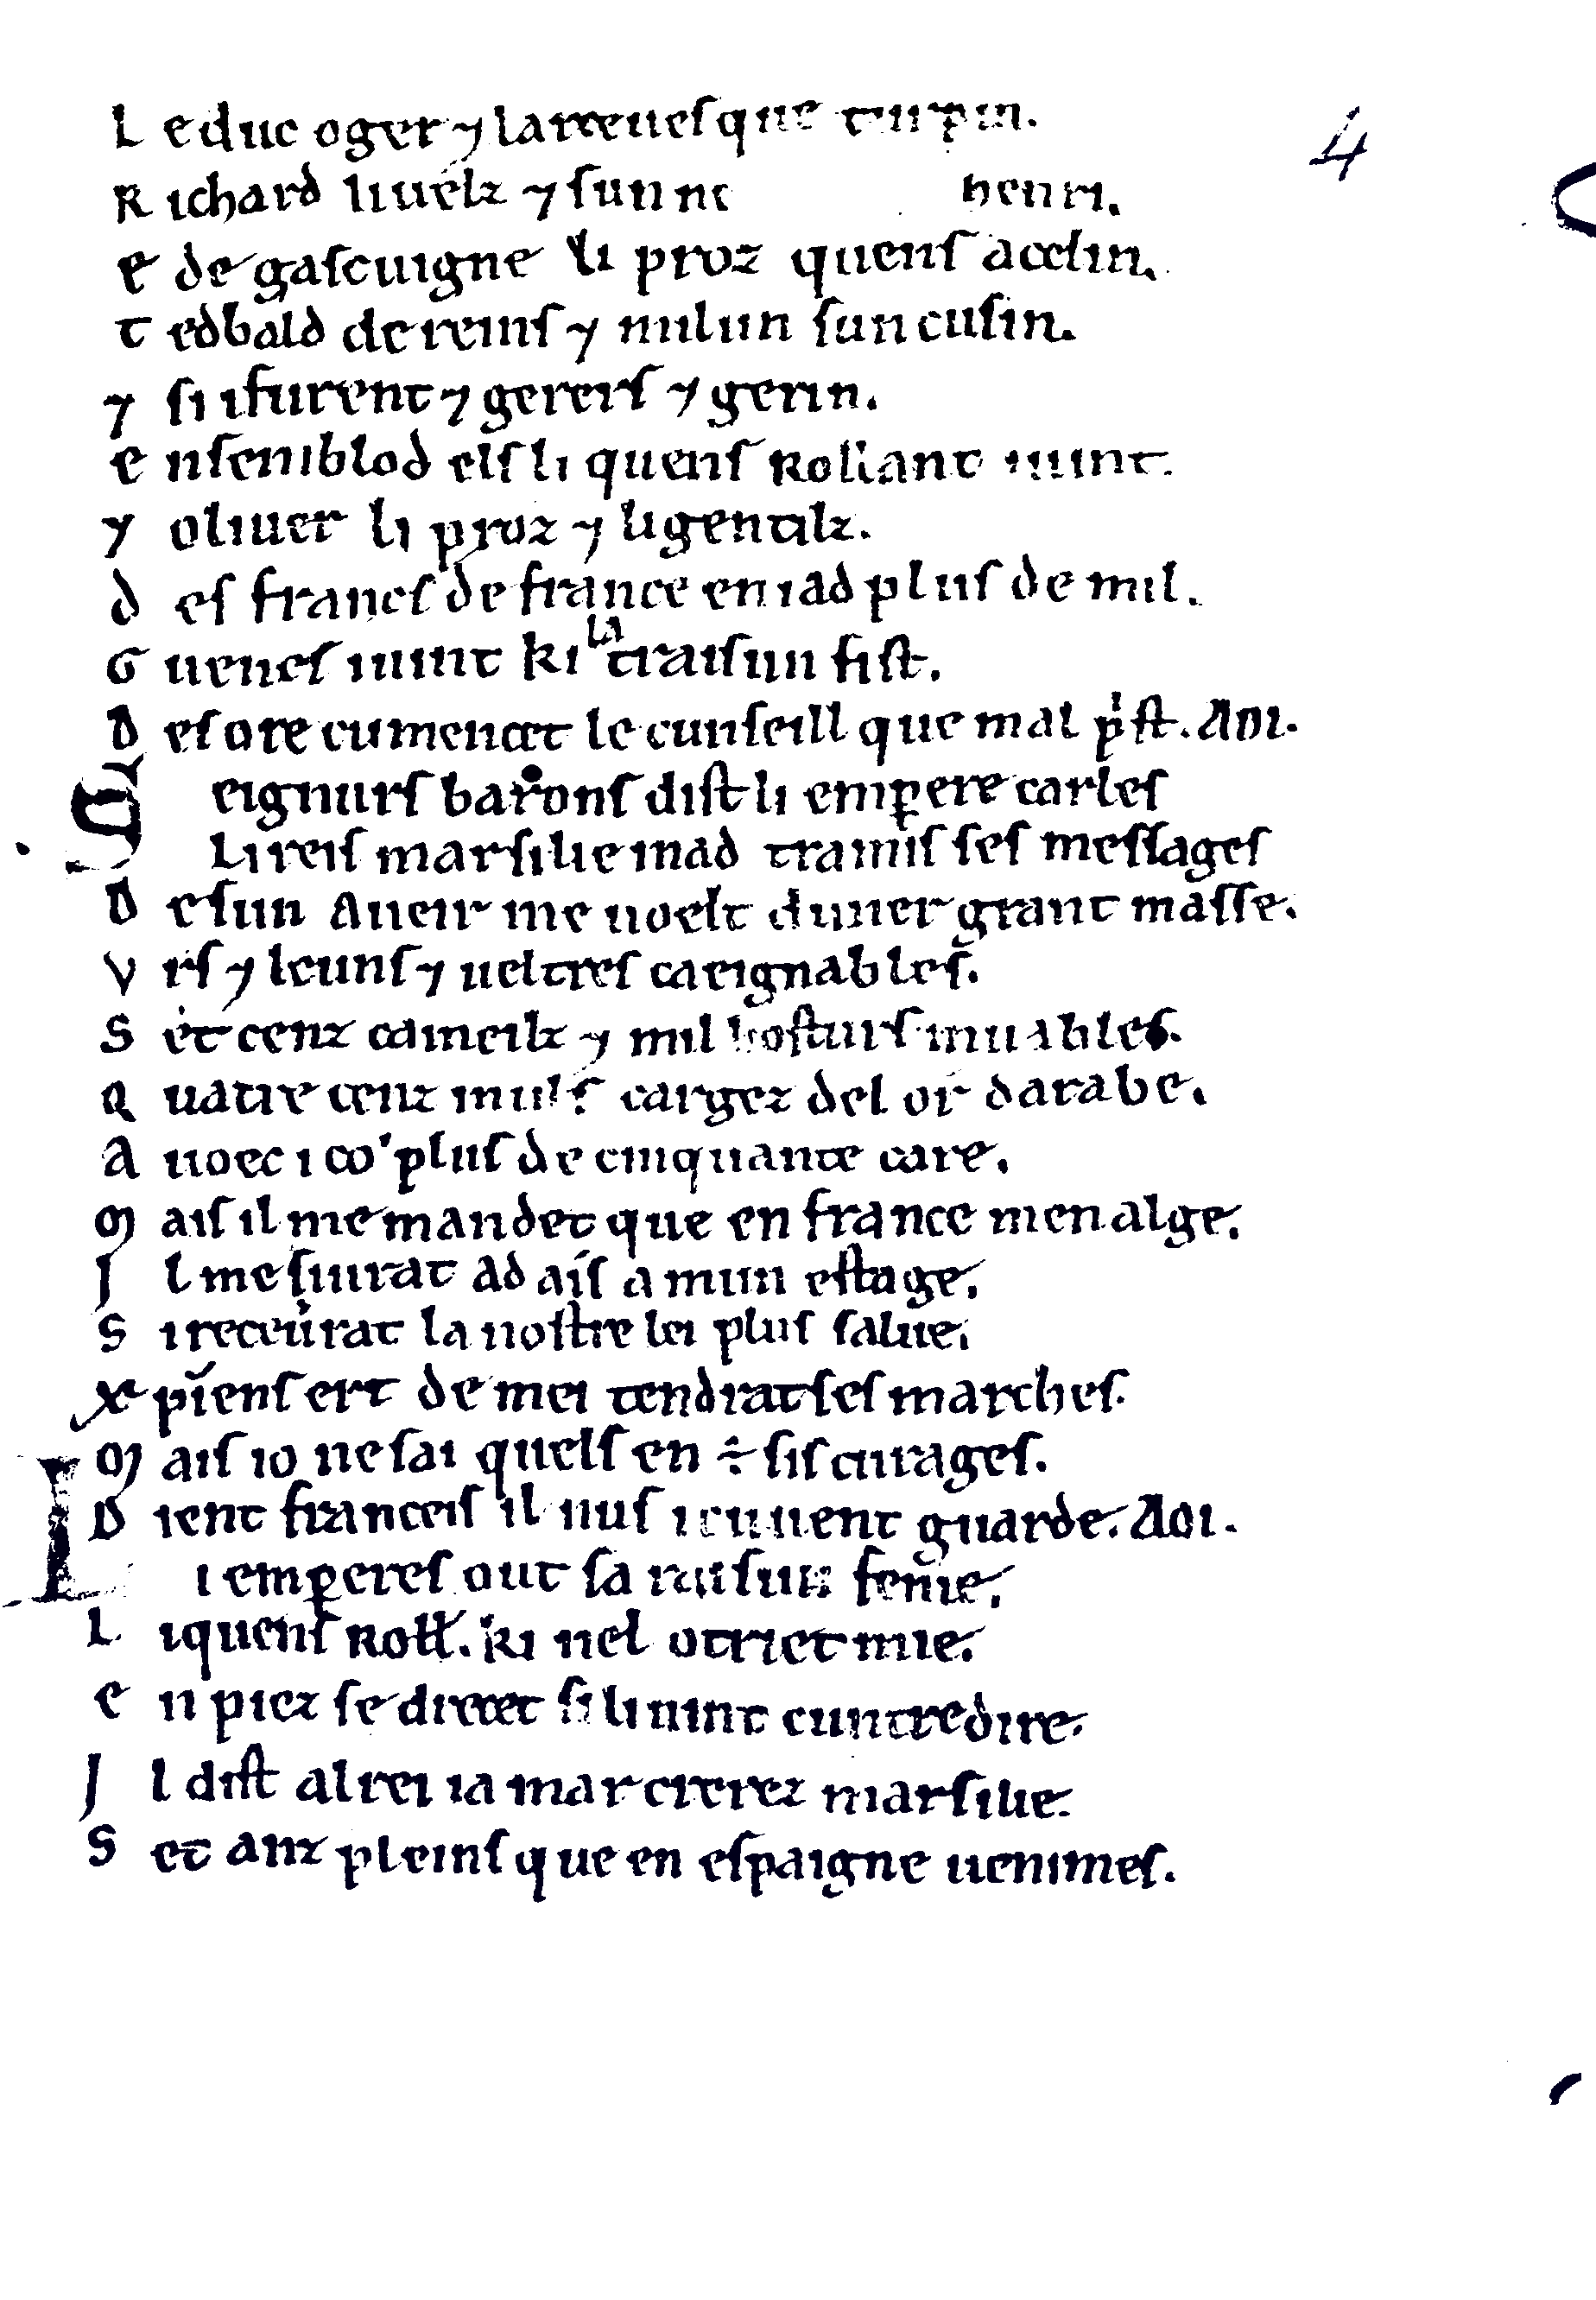 L e duc oger ⁊ larceuesque turpin.
4
R ichard liuelz ⁊ sun henri.
e de gascuigne li proz quens acelin.
t edbald de reins ⁊ milun sun cusin.
⁊ si i furent ⁊ gerers ⁊ gerin.
e nsembl od els li quens Rollant i uint.
⁊ oliuer li proz ⁊ li gentilz.
d es francs de france en i ad plus de mil.
G uenes i uint ki la traisun fist.
D es ore cumencet le cunseill que mal pͥst. Aoi.
S eignurs barons dist li emꝑere carles
Li reis marsilie mad tramis ses messages
D e sun Aueir me uoelt duner grant masse.
V rs ⁊ leuns ⁊ ueltres caeignables.
S et cenz cameilz ⁊ mil hosturs muables.
Q uatre cenz muls cargez del or darabe.
A uoec ico plus de cinquante care.
M ais il me mandet que en france men alge.
I l me siurat ad ais a mun estage.
S i receurat la nostre lei plus salue.
X p̄iens ert de mei tendrat ses marches.
M ais io ne sai quels en ÷ sis curages.
D ient franceis il nus i cuuent guarde. Aoi.
L i emꝑeres out sa raisun fenie.
L i quens Roll̵. ki nel otriet mie.
e n piez se drecet si li uint cuntredire.
I l dist al rei ia mar crerez marsilie.
S et anz pleins que en espaigne uenimes.